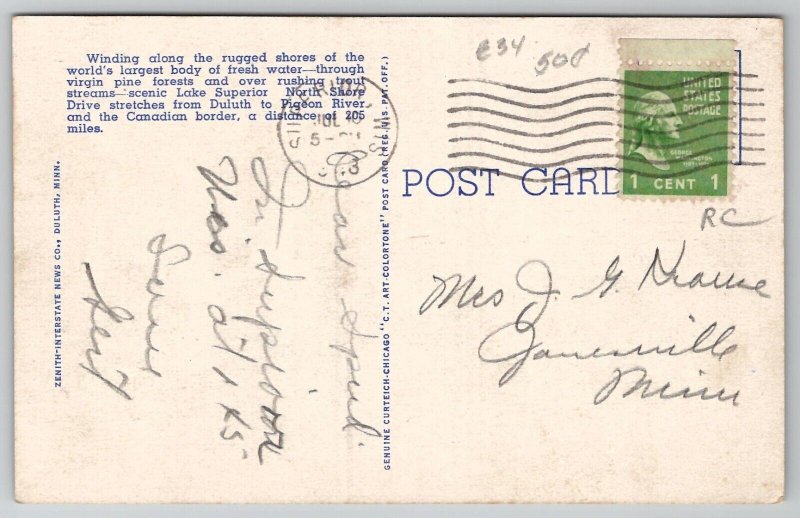 Winding along the rugged shores of the
world's largest body of fresh water—through
virgin pine forests and over rushing trout
streams—scenic Lake Superior North Shore
Drive stretches from Duluth to Pigeon River
and the Canadian border, a distance of 205
miles.
E34 50¢
UNITED
STATES
POSTAGE
GEORGE
WASHINGTON
1 CENT 1
SUPERIOR, WIS.
JUL
5-
POST CARD
RC
Mrs J. G. Krause
Janesville
Minn
Dear
In Superior
Wis. at
Love
Gert
GENUINE CURTEICH-CHICAGO "C.T. ART-COLORTONE" POST CARD (REG. U.S. PAT. OFF.)
ZENITH-INTERSTATE NEWS CO., DULUTH, MINN.